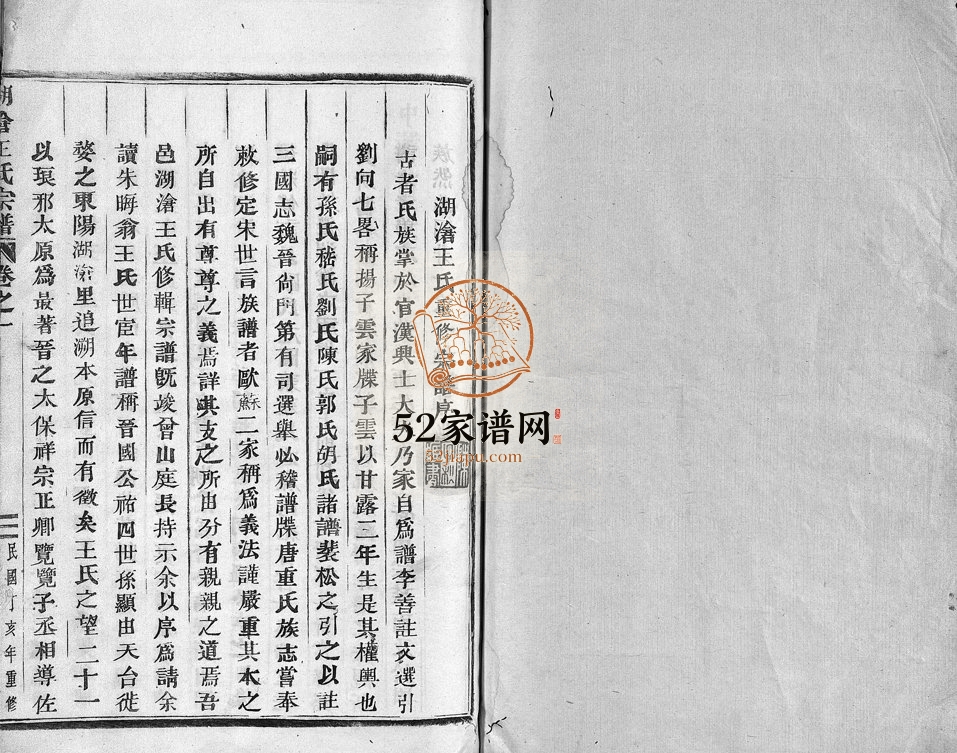 湖滄王氏重修宗譜序
古者氏族掌於官漢興士大夫乃家自為譜李善註文選引
劉向七畧稱揚子雲家牒子雲以甘露二年生是其權輿也
嗣有孫氏嵇氏劉氏陳氏郭氏胡氏諸譜裴松之引之以註
三國志魏晉尙門第有司選舉必稽譜牒唐重氏族志嘗奉
敕修定宋世言族譜者歐蘇二家稱爲義法謹嚴重其本之
所自出有尊尊之義焉詳其支之所由分有親親之道焉吾
邑湖滄王氏修輯宗譜旣竣曾山庭長持示余以序爲請余
讀朱晦翁王氏世宦年譜稱晉國公祐四世孫顯由天台徙
婺之東陽湖滄里追溯本原信而有徵矣王氏之望二十一
以琅邪太原爲最著晉之太保祥宗正卿覽覽子丞相導佐
湖滄王氏宗譜 卷之一
民國丁亥年重修
52家谱网
52jiapu.com